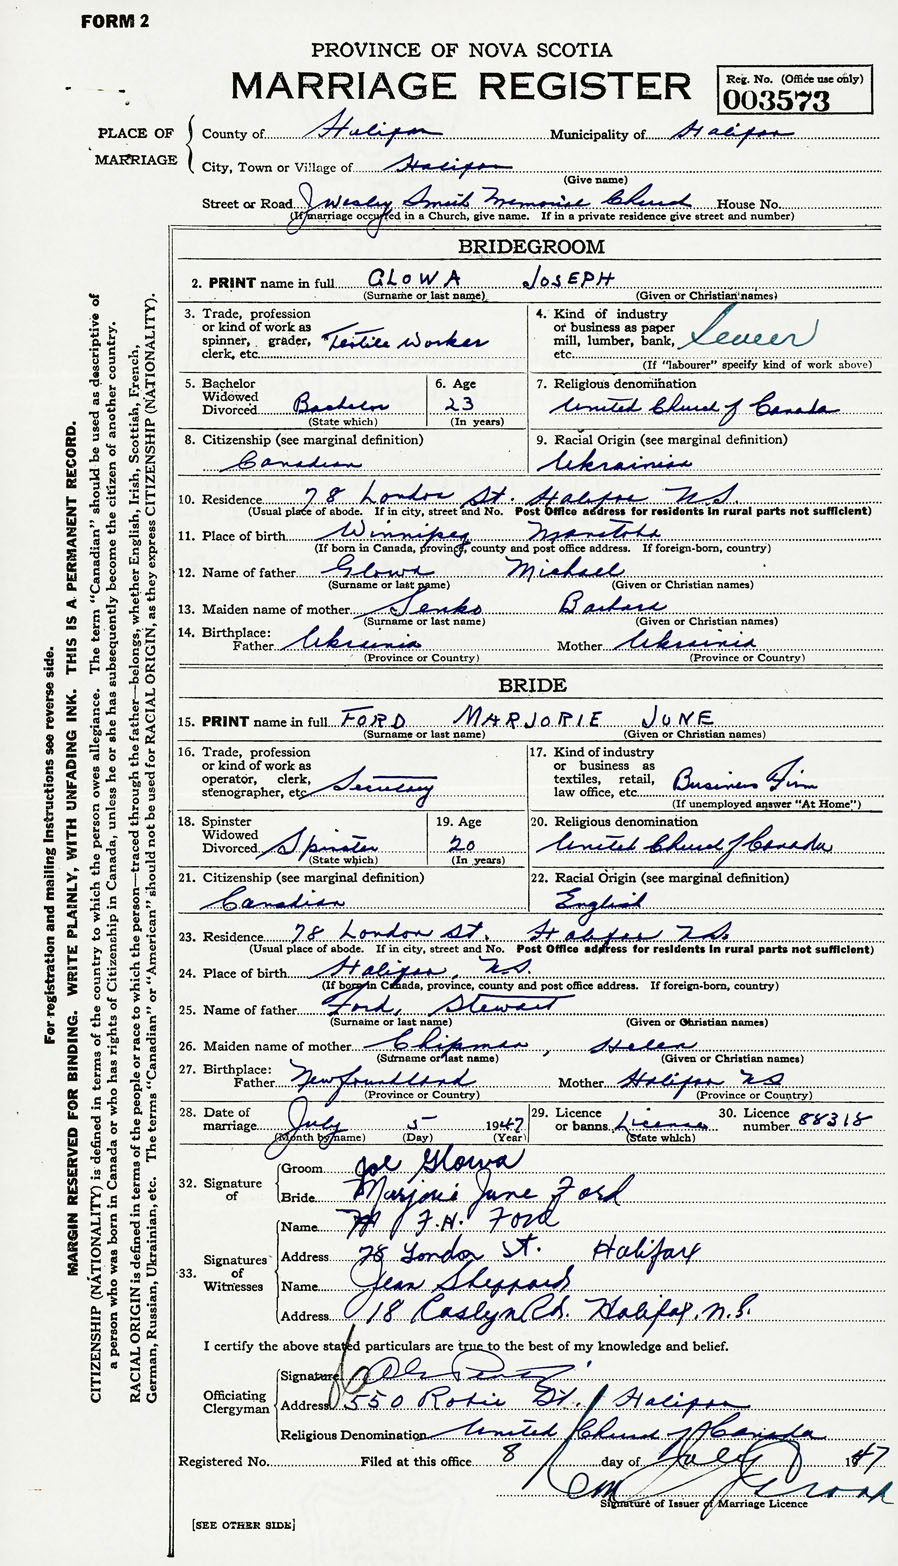 FORM 2
PROVINCE OF NOVA SCOTIA
MARRIAGE REGISTER
Reg. No. (Office use only)
003573
PLACE OF MARRIAGE
County of Halifax Municipality of Halifax
City, Town or Village of Halifax
(Give name)
Street or Road J Wesley Smith Memorial Church House No.
(If marriage occurred in a Church, give name. If in a private residence give street and number)
BRIDEGROOM
2. PRINT name in full GLOWA JOSEPH
(Surname or last name) (Given or Christian names)
3. Trade, profession or kind of work as spinner, grader, clerk, etc. Textile Worker
4. Kind of industry or business as paper mill, lumber, bank, etc.
(If "labourer" specify kind of work above)
5. Bachelor Widowed Divorced Bachelor
(State which)
6. Age 23
(In years)
7. Religious denomination
United Church of Canada
8. Citizenship (see marginal definition)
Canadian
9. Racial Origin (see marginal definition)
Ukrainian
10. Residence 78 London St. Halifax N.S.
(Usual place of abode. If in city, street and No. Post Office address for residents in rural parts not sufficient)
11. Place of birth Winnipeg Manitoba
(If born in Canada, province, county and post office address. If foreign-born, country)
12. Name of father Glowa Michael
(Surname or last name) (Given or Christian names)
13. Maiden name of mother Senko Barbara
(Surname or last name) (Given or Christian names)
14. Birthplace:
Father Ukrainia Mother Ukrainia
(Province or Country) (Province or Country)
BRIDE
15. PRINT name in full FORD MARJORIE JUNE
(Surname or last name) (Given or Christian names)
16. Trade, profession or kind of work as operator, clerk, stenographer, etc. Secretary
17. Kind of industry or business as textiles, retail, law office, etc. Business Firm
(If unemployed answer "At Home")
18. Spinster Widowed Divorced Spinster
(State which)
19. Age 20
(In years)
20. Religious denomination
United Church of Canada
21. Citizenship (see marginal definition)
Canadian
22. Racial Origin (see marginal definition)
English
23. Residence 78 London St. Halifax N.S.
(Usual place of abode. If in city, street and No. Post Office address for residents in rural parts not sufficient)
24. Place of birth Halifax, N.S.
(If born in Canada, province, county and post office address. If foreign-born, country)
25. Name of father Ford, Stewart
(Surname or last name) (Given or Christian names)
26. Maiden name of mother Chipman, Helen
(Surname or last name) (Given or Christian names)
27. Birthplace:
Father Newfoundland Mother Halifax NS
(Province or Country) (Province or Country)
28. Date of marriage July 5 1947
(Month by name) (Day) (Year)
29. Licence or banns License
(State which)
30. Licence number 88318
32. Signature of
Groom Joe Glowa
Bride Marjorie June Ford
33. Signatures of Witnesses
Name F.H. Ford
Address 78 London St. Halifax
Name Jean Sheppard
Address 18 Roslyn Rd. Halifax. N.S.
I certify the above stated particulars are true to the best of my knowledge and belief.
Officiating Clergyman
Signature
Address 550 Robie St. Halifax
Religious Denomination United Church of Canada
Registered No. Filed at this office 8 day of July 1947
Signature of Issuer of Marriage Licence
[SEE OTHER SIDE]
For registration and mailing instructions see reverse side.
MARGIN RESERVED FOR BINDING. WRITE PLAINLY, WITH UNFADING INK. THIS IS A PERMANENT RECORD.
CITIZENSHIP (NATIONALITY) is defined in terms of the country to which the person owes allegiance. The term "Canadian" should be used as descriptive of
a person who was born in Canada or who has rights of Citizenship in Canada, unless he or she has subsequently become the citizen of another country.
RACIAL ORIGIN is defined in terms of the people or race to which the person—traced through the father—belongs, whether English, Irish, Scottish, French,
German, Russian, Ukrainian, etc. The terms "Canadian" or "American" should not be used for RACIAL ORIGIN, as they express CITIZENSHIP (NATIONALITY).